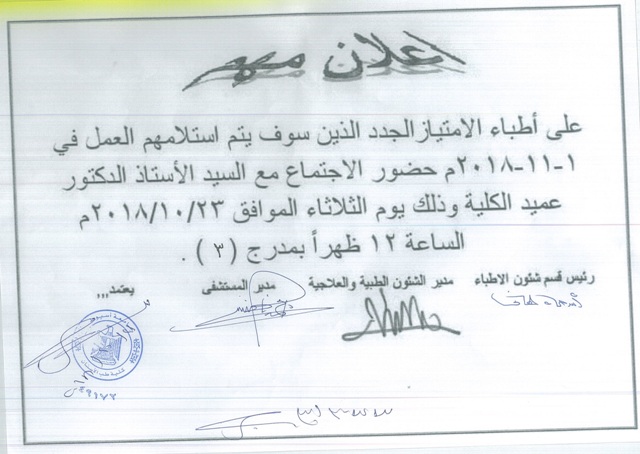 اعلان مهم
على أطباء الامتياز الجدد الذين سوف يتم استلامهم العمل في
١-١١-٢٠١٨م حضور الاجتماع مع السيد الأستاذ الدكتور
عميد الكلية وذلك يوم الثلاثاء الموافق ٢٠١٨/١٠/٢٣م
الساعة ١٢ ظهراً بمدرج ( ٣ ) .
رئيس قسم شئون الاطباء مدير الشئون الطبية والعلاجية مدير المستشفى يعتمد,,,